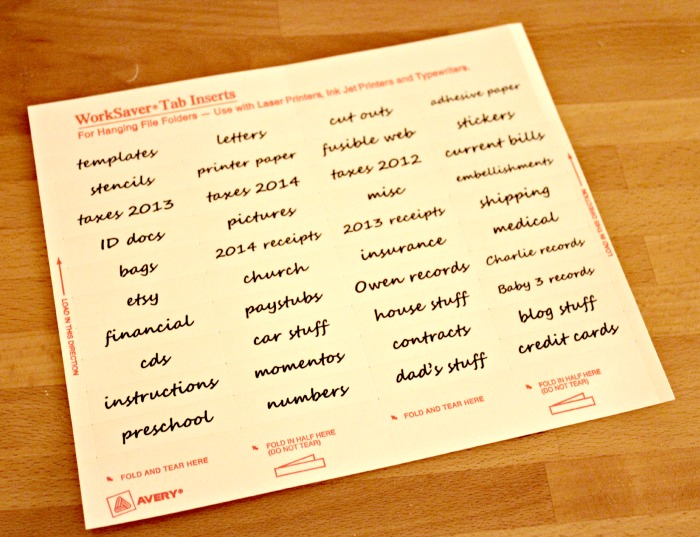 WorkSaver® Tab Inserts
For Hanging File Folders — Use with Laser Printers, Ink Jet Printers and Typewriters.
templates letters cut outs adhesive paper
stencils printer paper fusible web stickers
taxes 2013 taxes 2014 taxes 2012 current bills
ID docs pictures misc embellishments
bags 2014 receipts 2013 receipts shipping
etsy church insurance medical
financial paystubs Owen records Charlie records
cds car stuff house stuff Baby 3 records
instructions momentos contracts blog stuff
preschool numbers dad's stuff credit cards
LOAD IN THIS DIRECTION
LOAD IN THIS DIRECTION
FOLD AND TEAR HERE
FOLD IN HALF HERE
(DO NOT TEAR)
FOLD AND TEAR HERE
FOLD IN HALF HERE
(DO NOT TEAR)
AVERY®